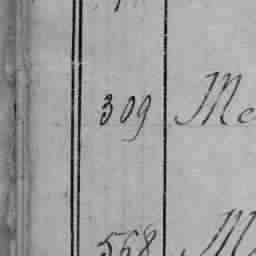 309 Me
568 M